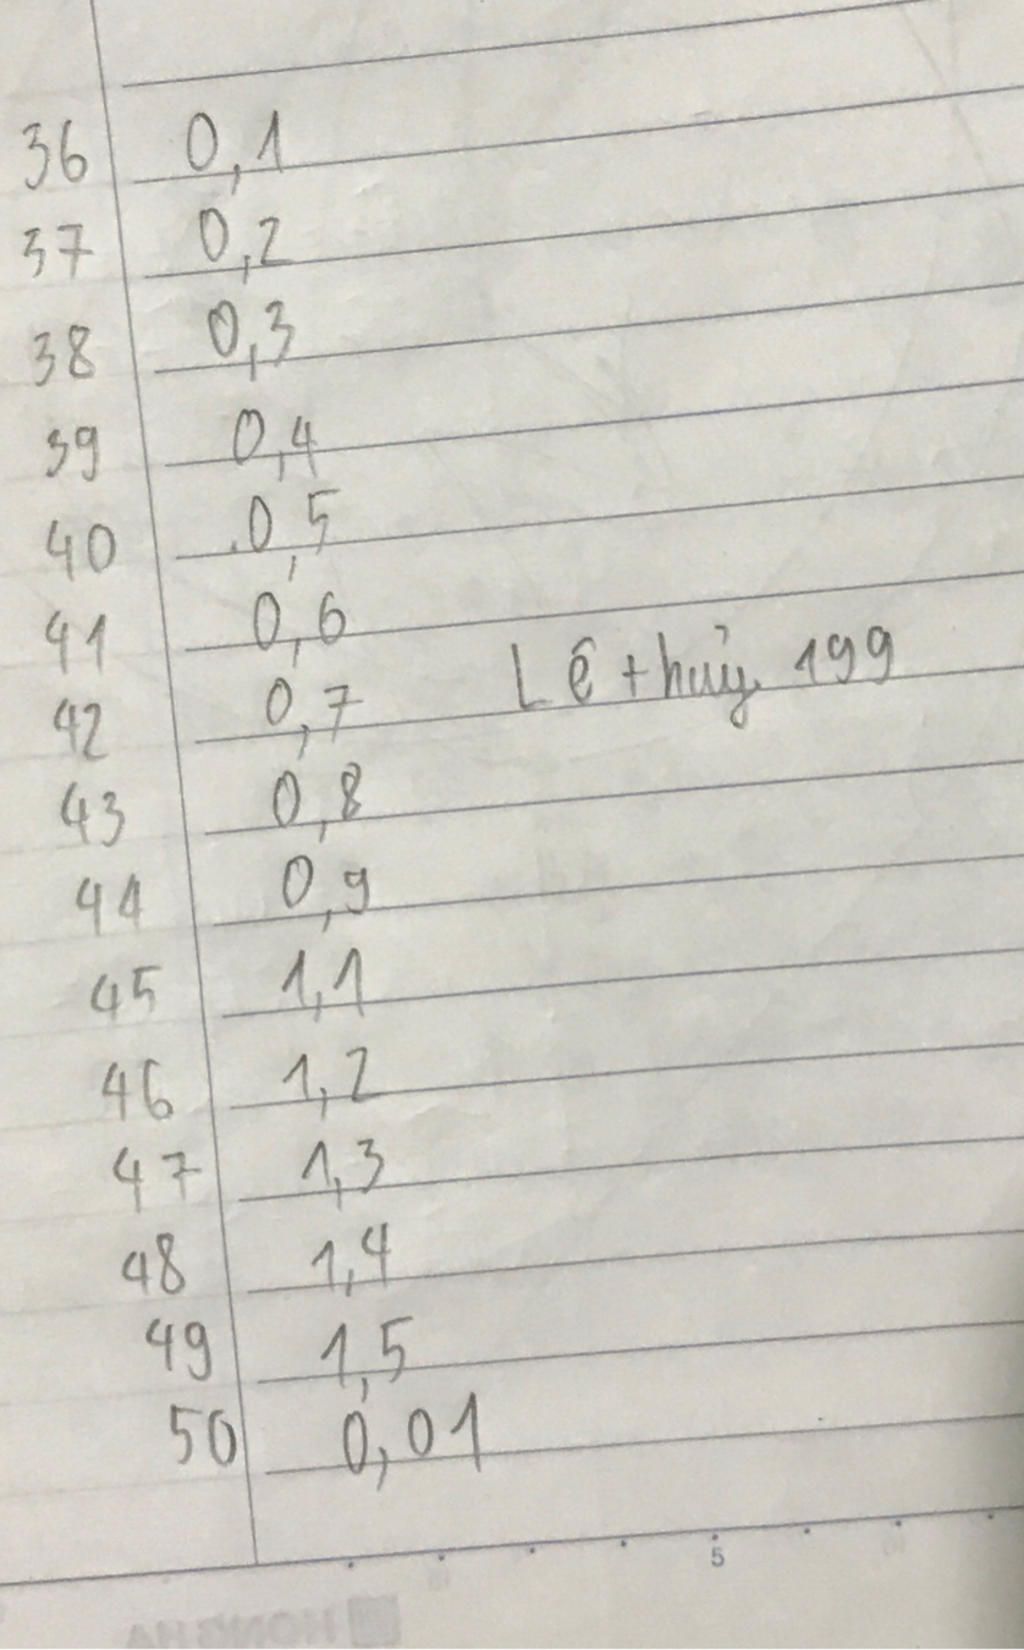 36 0,1
37 0,2
38 0,3
39 0,4
40 0,5
41 0,6
42 0,7 Lê thuỷ 199
43 0,8
44 0,9
45 1,1
46 1,2
47 1,3
48 1,4
49 1,5
50 0,01
5
HONGHA